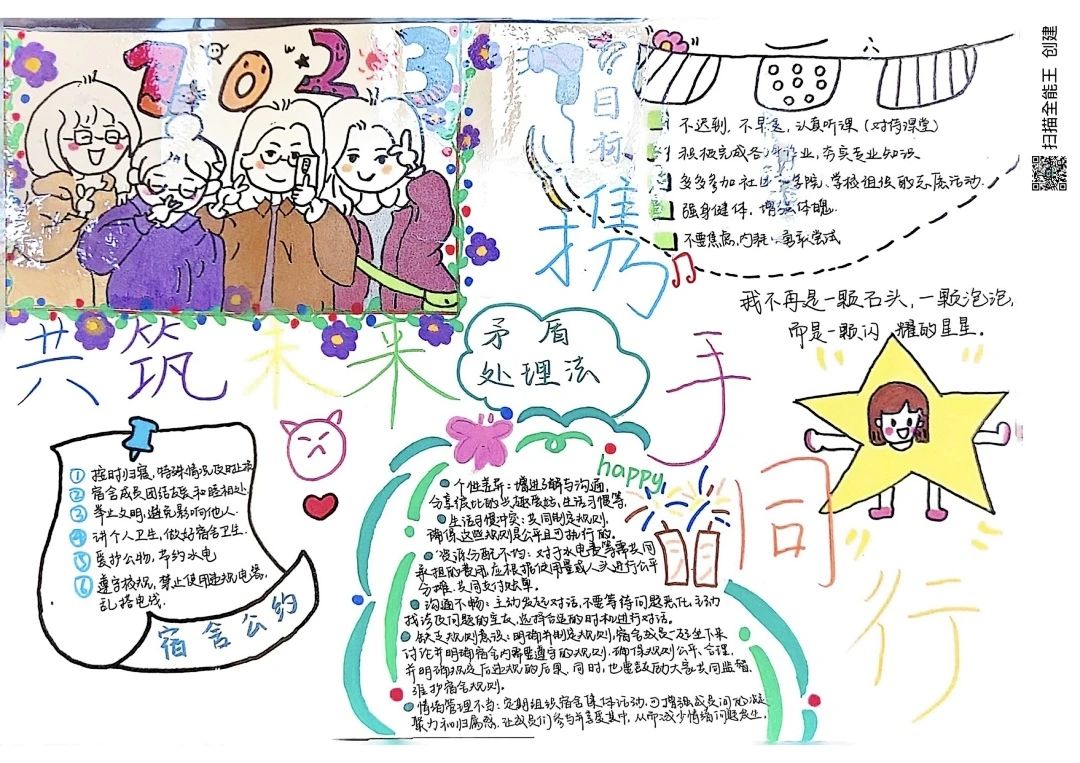 1023
目标
不迟到，不早退，认真听课（对待课堂）
积极完成各 作业，夯实专业知识
多多参加社 学院、学校组织的志愿活动.
强身健体，增强体魄.
不要焦虑,内耗，勇敢尝试
携手同行
我不再是一颗石头，一颗泡泡，
而是一颗闪 耀的星星。
共筑未来
矛盾
处理法
宿舍公约
① 按时归寝，特殊情况及时
② 宿舍成员团结友爱 和睦相处.
③ 举止文明，避免影响他人.
④ 讲个人卫生，做好宿舍卫生.
⑤ 爱护公物，节约水电
⑥ 遵守校规，禁止使用违规电器，
乱搭电线.
happy
个性差异：增进了解与沟通，
分享彼此的兴趣爱好，生活习惯等.
生活习惯冲突：共同制定规则，
确保这些规则是公平且可执行的。
资源分配不均：对于水电费等需共同
承担的费用,应根据使用量或人头进行公平
分摊，共同支付账单。
沟通不畅：主动发起对话，不要等待问题恶化，主动
找涉及问题的室友，选择合适的时机进行对话。
缺乏规则意识：明确并制定规则，宿舍成员一起坐下来
讨论并明确宿舍内需要遵守的规则，确保规则公平、合理，
并明确规定后违规的后果，同时，也要鼓励大家共同监督，
维护宿舍规则。
情绪管理不当：定期组织宿舍集体活动，可增强成员间的凝
聚力和归属感，让成员们参与并享受其中，从而减少情绪问题发生.
扫描全能王 创建